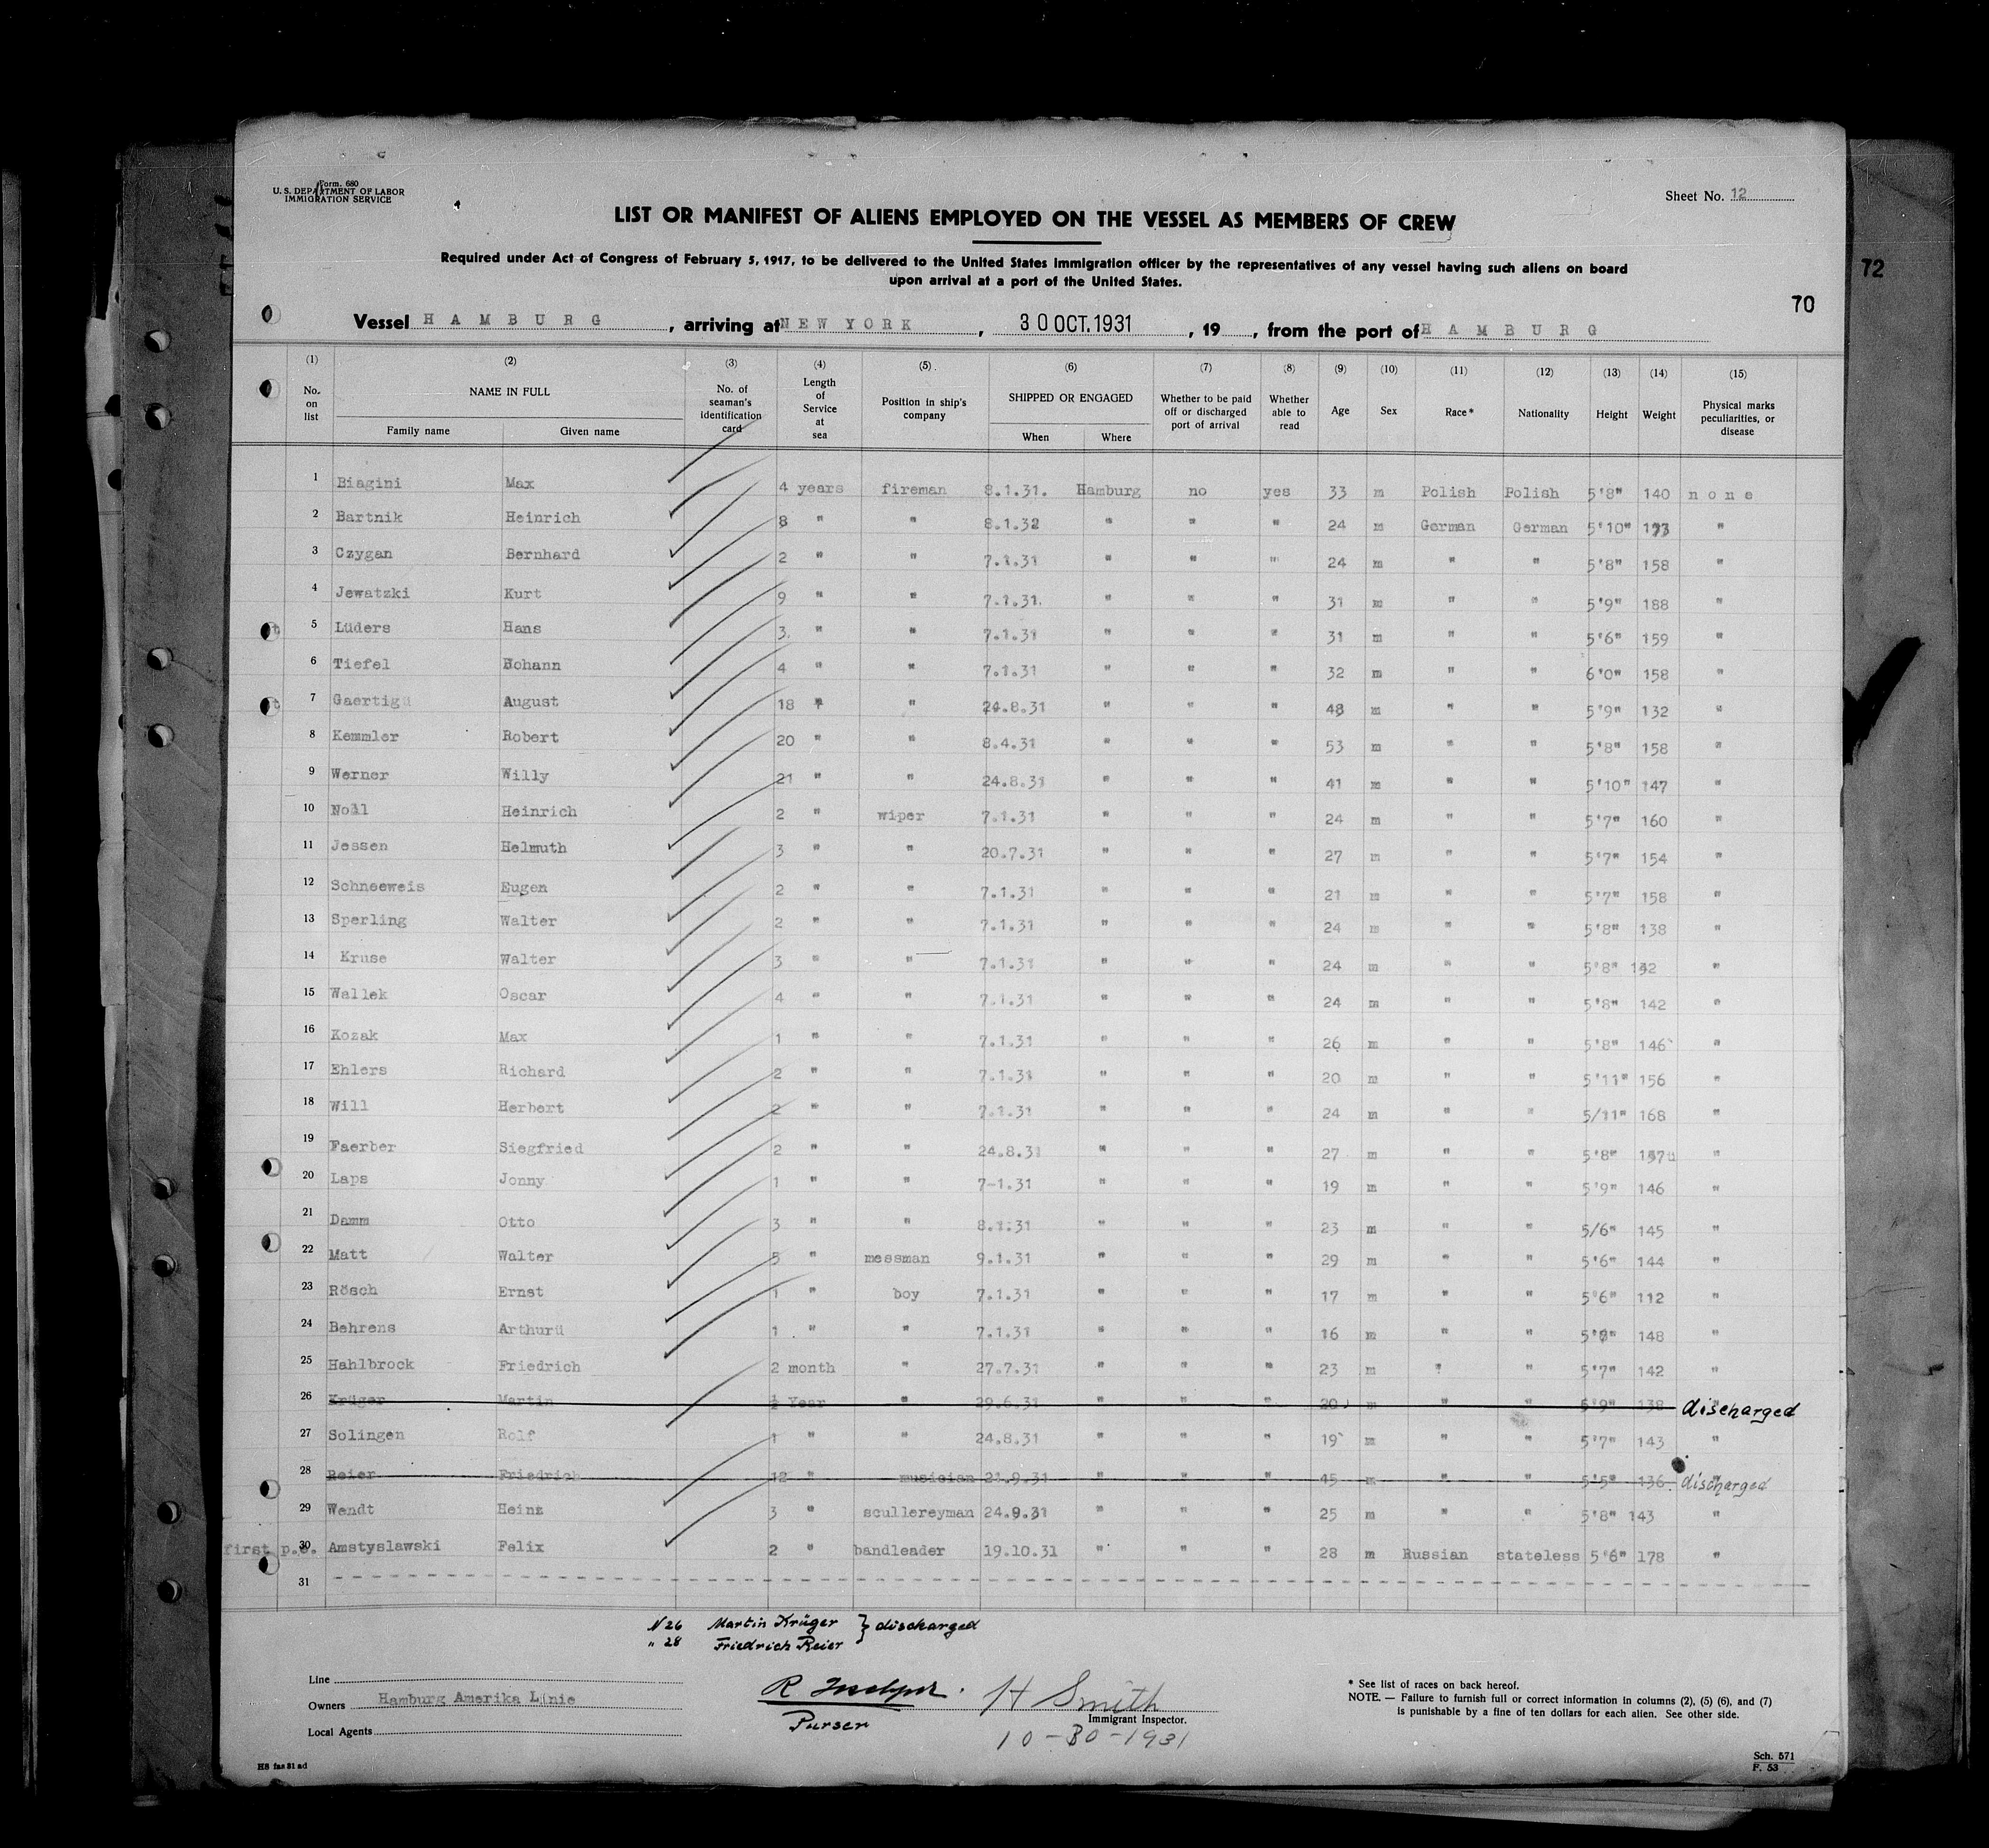 Form. 680
U. S. DEPARTMENT OF LABOR
IMMIGRATION SERVICE
Sheet No. 12
LIST OR MANIFEST OF ALIENS EMPLOYED ON THE VESSEL AS MEMBERS OF CREW
Required under Act of Congress of February 5, 1917, to be delivered to the United States immigration officer by the representatives of any vessel having such aliens on board
upon arrival at a port of the United States.
72
70
Vessel HAMBURG, arriving at NEW YORK, 30 OCT. 1931, 19, from the port of HAMBURG
(1) No. on list (2) NAME IN FULL Family name Given name (3) No. of seaman's identification card (4) Length of Service at sea (5) Position in ship's company (6) SHIPPED OR ENGAGED When Where (7) Whether to be paid off or discharged port of arrival (8) Whether able to read (9) Age (10) Sex (11) Race* (12) Nationality (13) Height (14) Weight (15) Physical marks peculiarities, or disease
1 Biagini Max 4 years fireman 8.1.31. Hamburg no yes 33 m Polish Polish 5'8" 140 none
2 Bartnik Heinrich 8 " " 8.1.32 " " " 24 m German German 5'10" "
3 Czygan Bernhard 2 " " 7.1.31 " " " 24 m " " 5'8" 158 "
4 Jewatzki Kurt 9 " " 7.1.31. " " " 31 m " " 5'9" 188 "
5 Lüders Hans 3. " " 7.1.31 " " " 31 m " " 5'6" 159 "
6 Tiefel Hohann 4 " " 7.1.31 " " " 32 m " " 6'0" 158 "
7 Gaertig August 18 " " 24.8.31 " " " 48 m " " 5'9" 132 "
8 Kemmler Robert 20 " " 8.4.31 " " " 53 m " " 5'8" 158 "
9 Werner Willy 21 " " 24.8.31 " " " 41 m " " 5'10" 147 "
10 Noll Heinrich 2 " wiper 7.1.31 " " " 24 m " " 5'7" 160 "
11 Jessen Helmuth 3 " " 20.7.31 " " " 27 m " " 5'7" 154 "
12 Schneeweis Eugen 2 " " 7.1.31 " " " 21 m " " 5'7" 158 "
13 Sperling Walter 2 " " 7.1.31 " " " 24 m " " 5'8" 138 "
14 Kruse Walter 3 " " 7.1.31 " " " 24 m " " 5'8" "
15 Wallek Oscar 4 " " 7.1.31 " " " 24 m " " 5'8" 142 "
16 Kozak Max 1 " " 7.1.31 " " " 26 m " " 5'8" 146 "
17 Ehlers Richard 2 " " 7.1.31 " " " 20 m " " 5'11" 156 "
18 Will Herbert 2 " " 7.1.31 " " " 24 m " " 5/11" 168 "
19 Faerber Siegfried 2 " " 24.8.31 " " " 27 m " " 5'8" "
20 Laps Jonny 1 " " 7-1.31 " " " 19 m " " 5'9" 146 "
21 Damm Otto 3 " " 8.1.31 " " " 23 m " " 5/6" 145 "
22 Matt Walter 5 " messman 9.1.31 " " " 29 m " " 5'6" 144 "
23 Rösch Ernst 1 " boy 7.1.31 " " " 17 m " " 5'6" 112 "
24 Behrens Arthur 1 " " 7.1.31 " " " 16 m " " 148 "
25 Hahlbrock Friedrich 2 month " 27.7.31 " " " 23 m " " 5'7" 142 "
26 Krüger Martin ½ Year " 29.6.31 " " " 20 m " " 5'9" 138 " discharged
27 Solingen Rolf 1 " " 24.8.31 " " " 19 m " " 5'7" 143 "
28 Reier Friedrich 12 " musician 21.9.31 " " " 45 m " " 5'5" 136 " discharged
29 Wendt Heinz 3 " scullereyman 24.9.31 " " " 25 m " " 5'8" 143 "
first p.s. 30 Amstyslawski Felix 2 " bandleader 19.10.31 " " " 28 m Russian stateless 5'6" 178 "
31
N 26 Martin Krüger } discharged
" 28 Friedrich Reier
Line
Owners Hamburg Amerika Linie
Local Agents
Purser
H Smith
Immigrant Inspector.
10-30-1931
* See list of races on back hereof.
NOTE. — Failure to furnish full or correct information in columns (2), (5) (6), and (7)
is punishable by a fine of ten dollars for each alien. See other side.
Sch. 571
F. 53